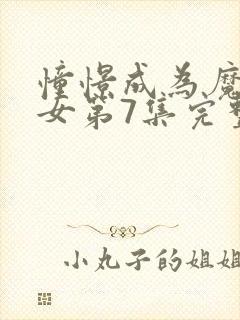 憧憬成為魔
女第7集完整
小丸子的姐姐